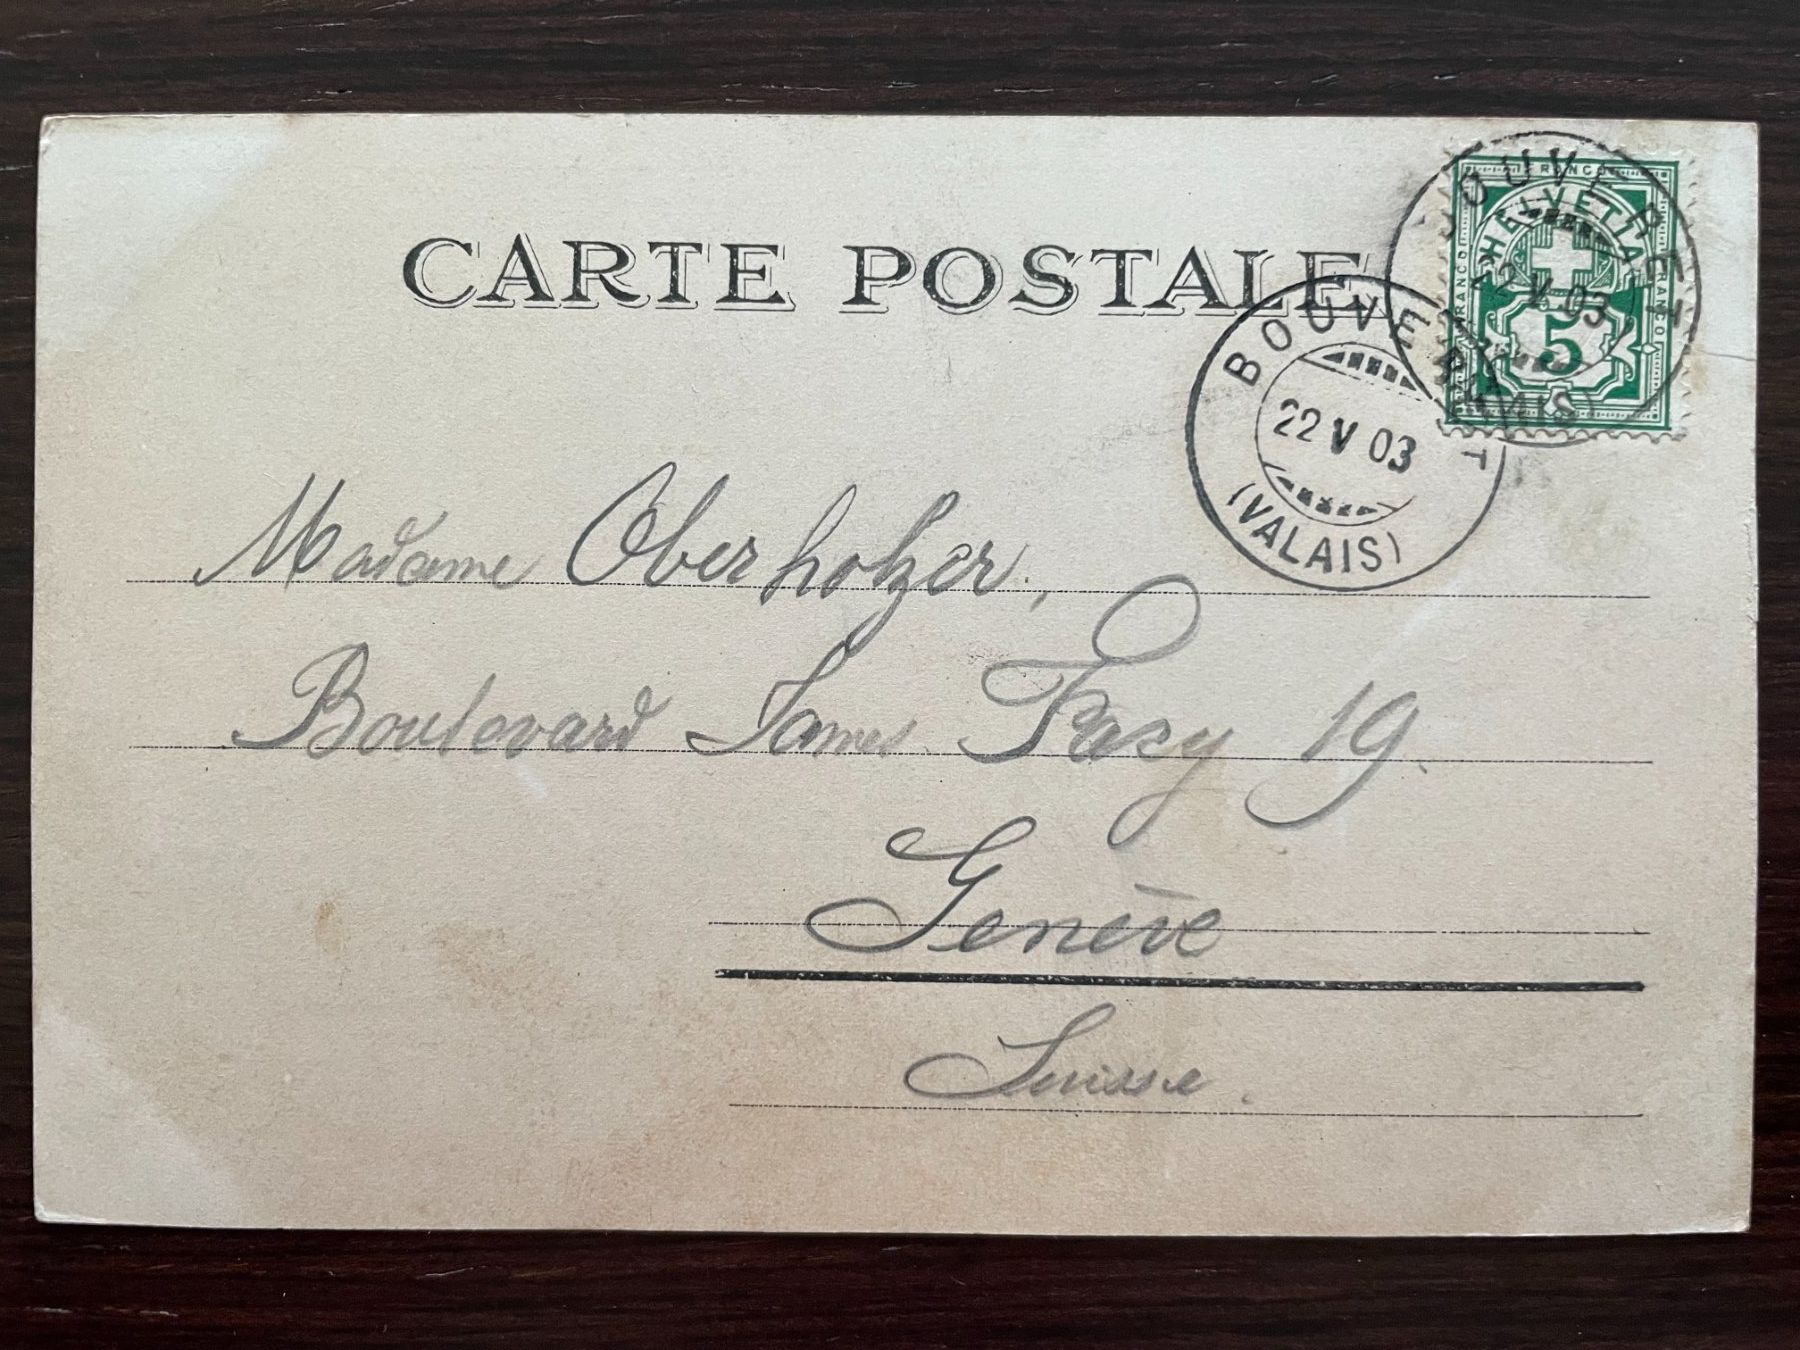 CARTE POSTALE
FRANCO
HELVETIA
FRANCO
FRANCO
5
BOUVERET
22 V 03
(VALAIS)
BOUVERET
22 V 03
(VALAIS)
Madame Oberholzer,
Boulevard James Fazy 19.
Genève
Suisse.